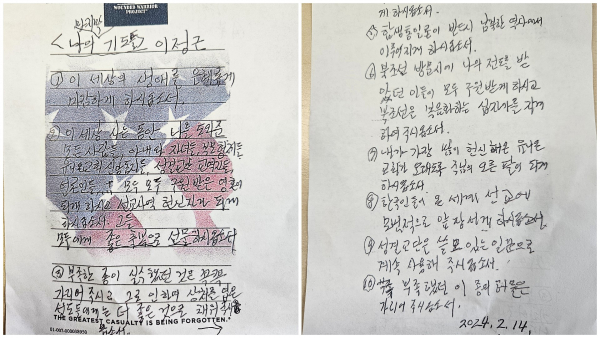 WOUNDED WARRIOR
PROJECT
마지막
<나의 기도> 이정근
① 이 세상의 생애를 은혜롭게
마감하게 하시옵소서.
② 이 세상 사는 동안 나를 도와준
모든 사람들, 아내와 자녀들, 부모형제들
유니온교회 신앙동지들, 성결교단 교역자들,
모두 구원받은 영혼이
되게 하시고 선교사역 헌신자가 되게
하시옵소서. 그들
모두에게 좋은 것으로 선물하시옵소서
③ 부족한 종이 실수했던 것은
가리어 주시고 그로 인하여 상처를 입은
성도들에게는 더 좋은 것으로 채워주시
옵소서
THE GREATEST CASUALTY IS BEING FORGOTTEN.
게 하시옵소서.
⑤ 합쌤통일론이 반드시 남북한 역사에서
이루어지게 하시옵소서.
⑥ 북조선 방문시에 나의 전도를 받
았던 이들이 모두 구원받게 하시고
북조선은 복음화하는 십자가를 지게
하여 주시옵소서.
⑦ 내가 가장 많이 헌신해온 유니온
교회가 오래도록 주님의 오른 팔이 되게
하시옵소서
⑧ 한국인들이 온 세계 선교에
모범적으로 앞장서게 하시옵소서.
⑨ 성결교단은 쓸모 있는 일꾼으로
계속 사용해 주시옵소서.
⑩ 부족했던 이 종의 허물은
가리어 주시옵소서.
2024. 2. 14.